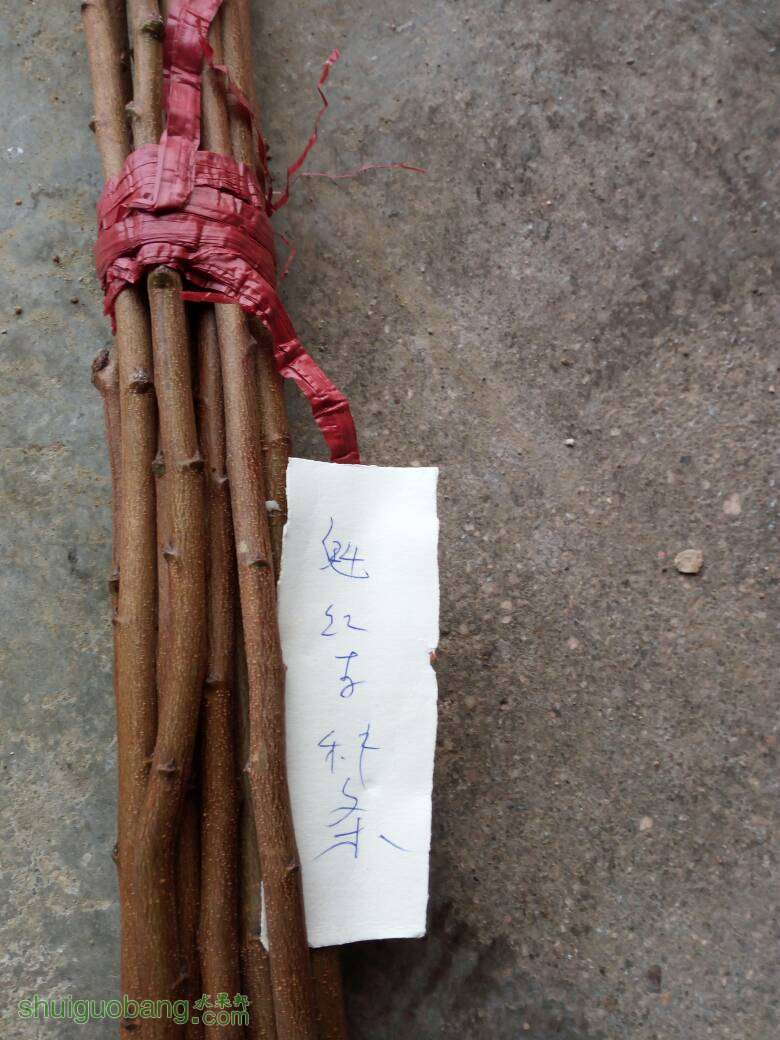 魁红枝条
shuiguobang.com
水果邦